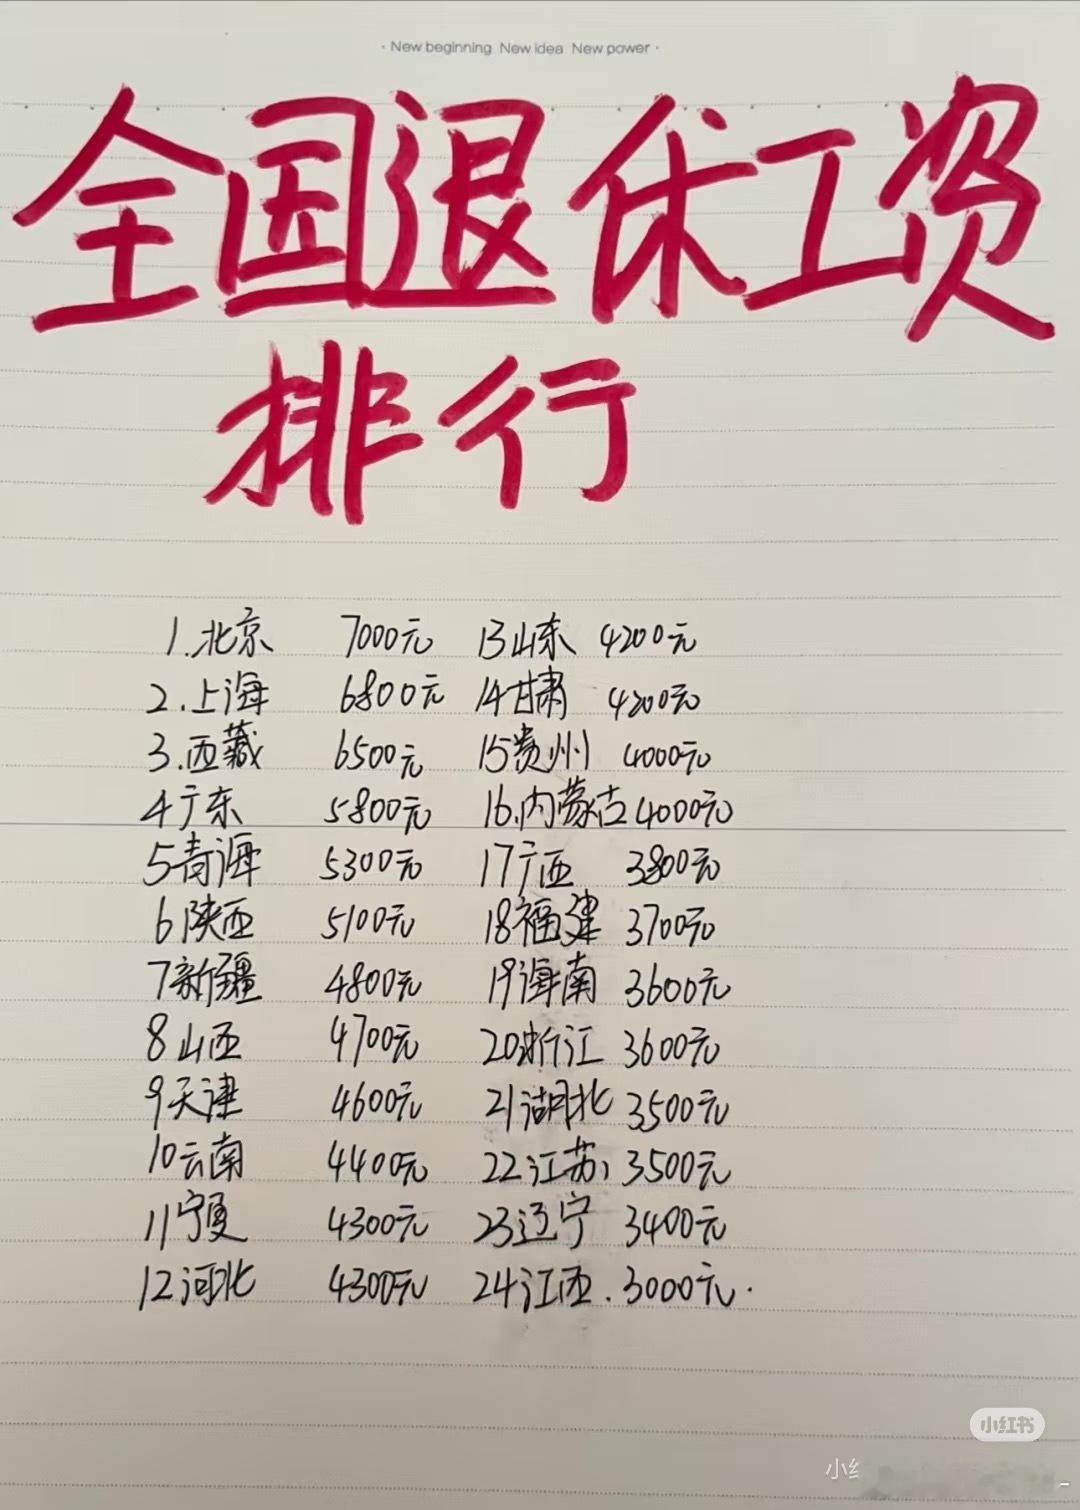 · New beginning New idea New power ·
全国退休工资
排行
1.北京 7000元 13山东 4200元
2.上海 6800元 14甘肃 4200元
3.西藏 6500元 15贵州 4000元
4广东 5800元 16.内蒙古4000元
5青海 5300元 17广西 3800元
6陕西 5100元 18福建 3700元
7新疆 4800元 19海南 3600元
8山西 4700元 20浙江 3600元
9天津 4600元 21湖北 3500元
10云南 4400元 22江苏 3500元
11宁夏 4300元 23辽宁 3400元
12河北 4300元 24江西.3000元.
小红书
小红